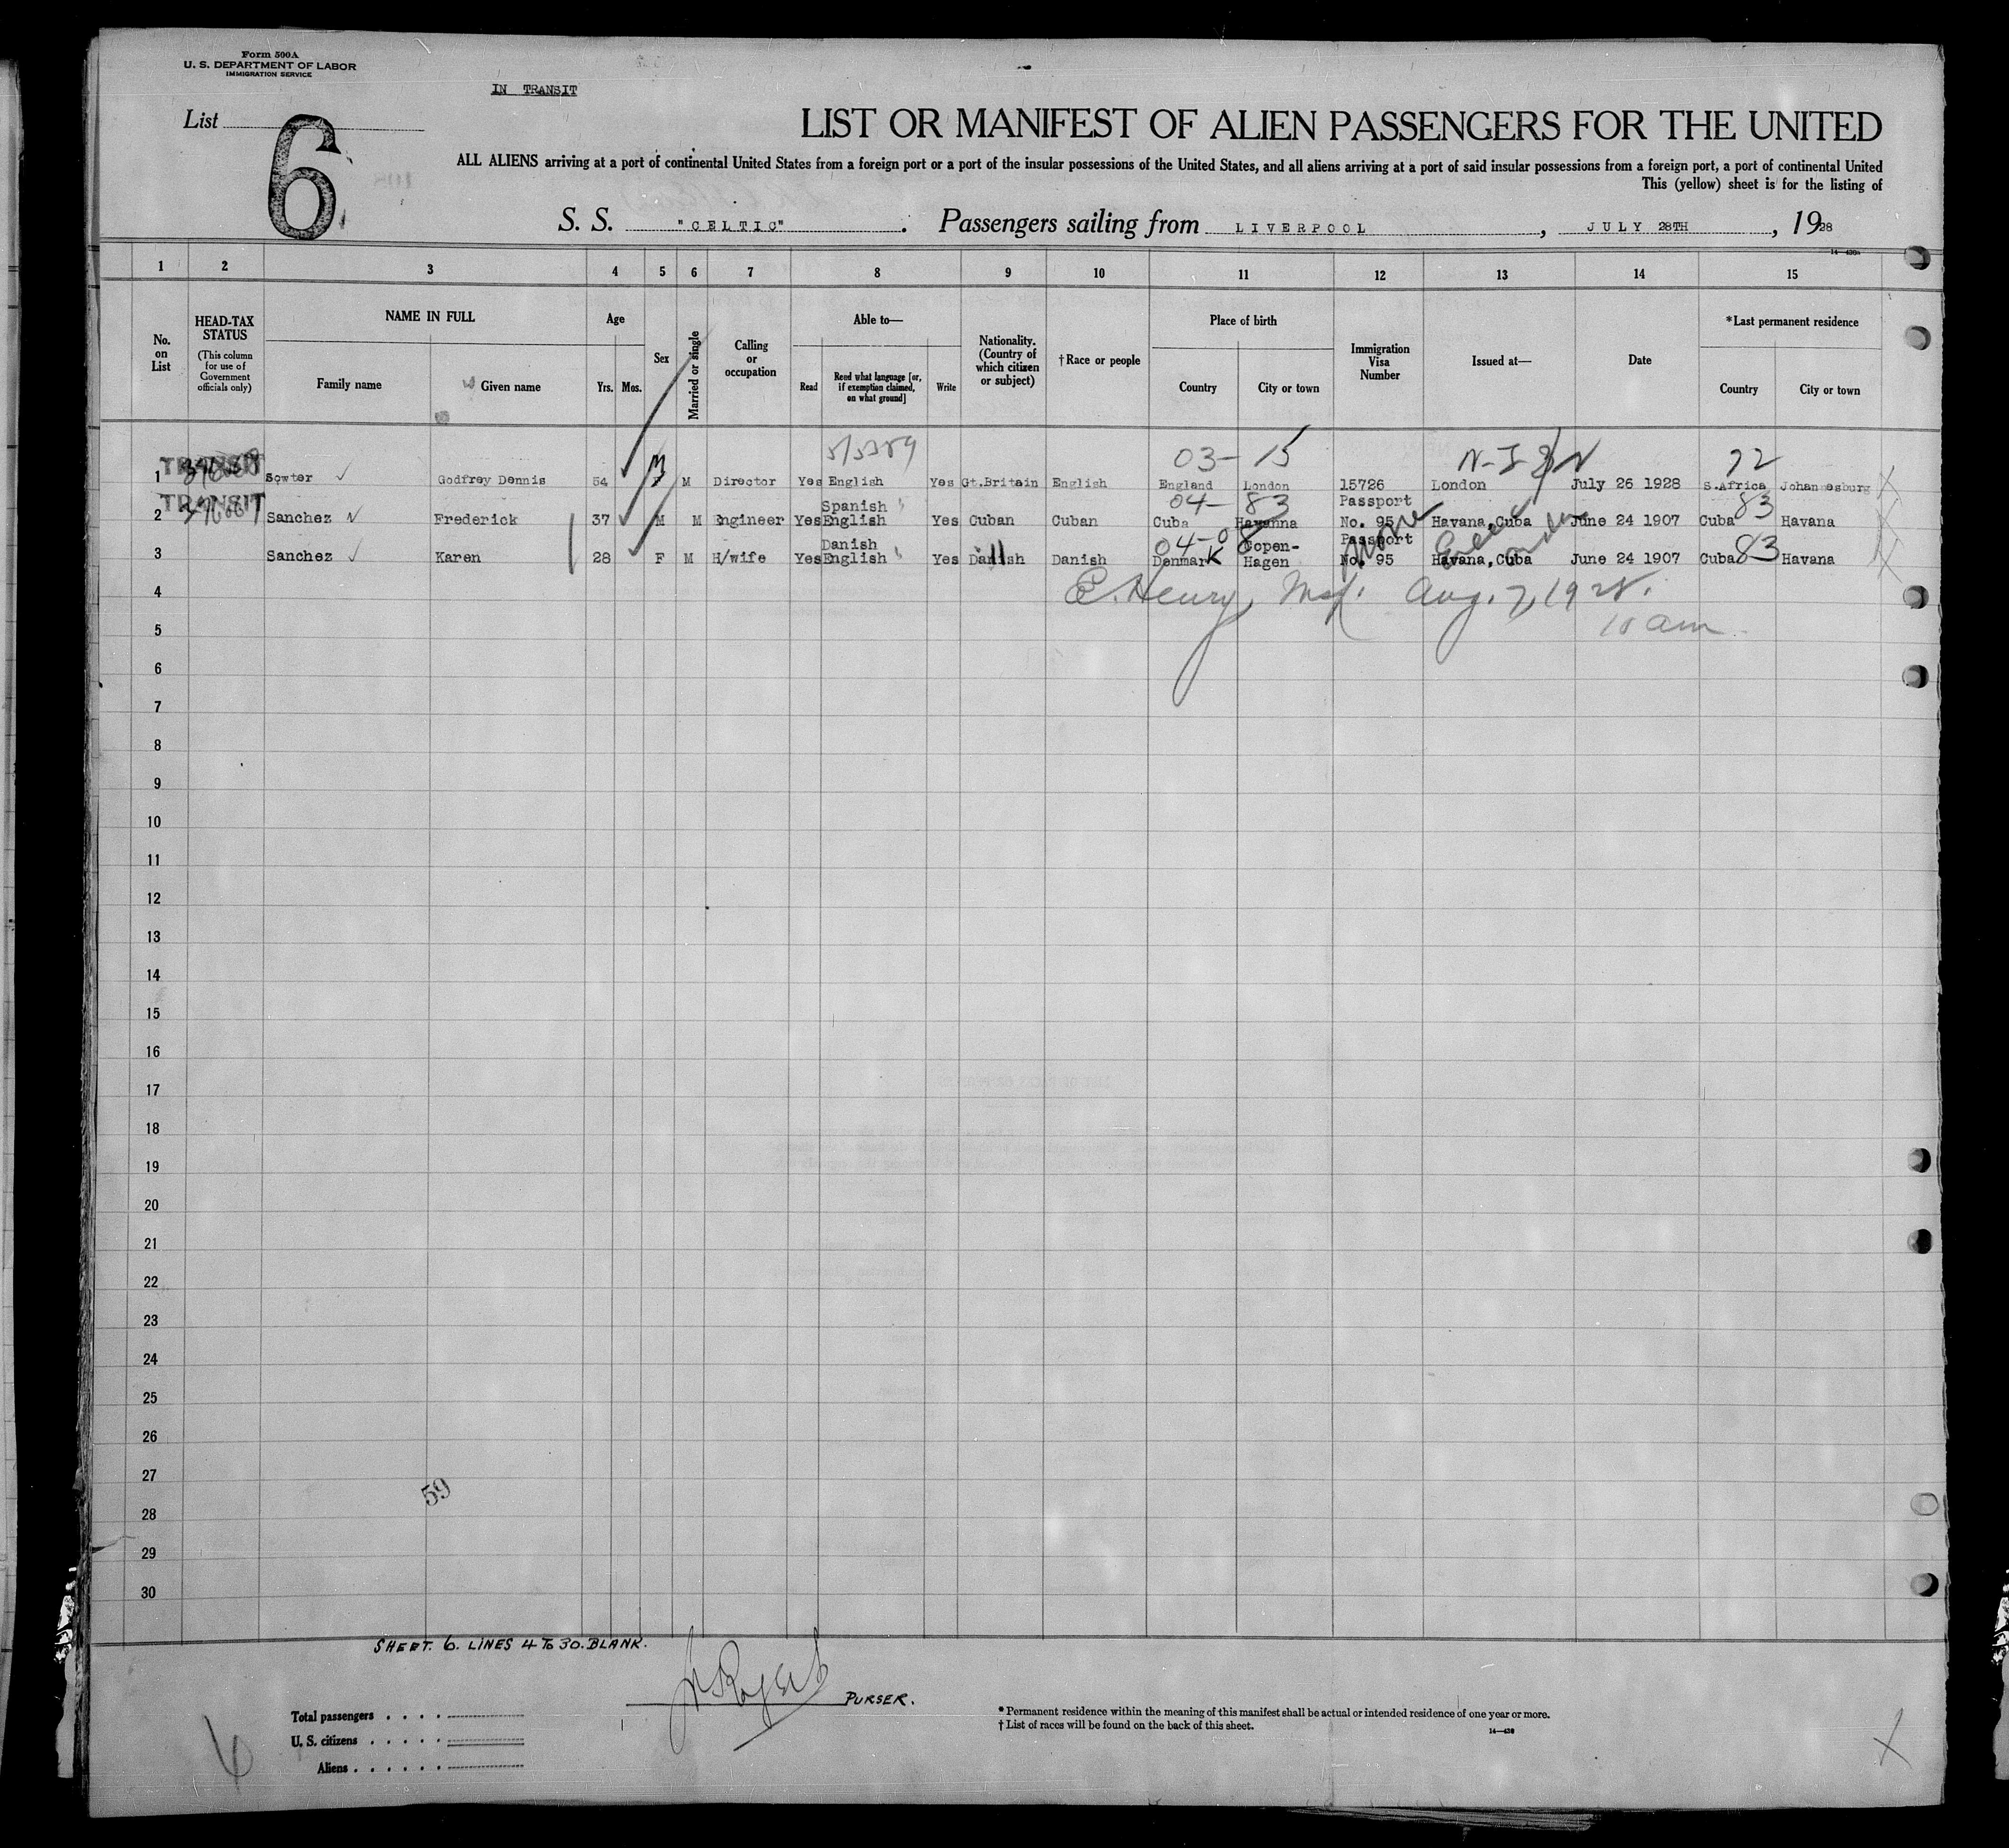 Form 500A
U. S. DEPARTMENT OF LABOR
IMMIGRATION SERVICE
IN TRANSIT
List 6
LIST OR MANIFEST OF ALIEN PASSENGERS FOR THE UNITED
ALL ALIENS arriving at a port of continental United States from a foreign port or a port of the insular possessions of the United States, and all aliens arriving at a port of said insular possessions from a foreign port, a port of continental United
This (yellow) sheet is for the listing of
S. S. "CELTIC". Passengers sailing from LIVERPOOL, JULY 28TH, 1928
1 2 3 4 5 6 7 8 9 10 11 12 13 14 15
No. on List
HEAD-TAX STATUS (This column for use of Government officials only)
NAME IN FULL Family name Given name
Age Yrs. Mos.
Sex
Married or single
Calling or occupation
Able to— Read Read what language [or, if exemption claimed, on what ground] Write
Nationality. (Country of which citizen or subject)
†Race or people
Place of birth Country City or town
Immigration Visa Number
Issued at—
Date
*Last permanent residence Country City or town
5/5389 03-15 72
1 TRANSIT Sowter Godfrey Dennis 54 M M Director Yes English Yes Gt.Britain English England London 15726 London July 26 1928 S.Africa Johannesburg
TRANSIT Spanish 04-83 Passport 83
2 Sanchez Frederick 37 M M Engineer Yes English Yes Cuban Cuban Cuba Havanna No. 95 Havana, Cuba June 24 1907 Cuba Havana
Danish Copen- Passport
3 Sanchez Karen 28 F M H/wife Yes English Yes Danish Danish Denmark Hagen No. 95 Havana, Cuba June 24 1907 Cuba 83 Havana
4 C. Henry, Aug. 7, 1928.
5 10 am
6
7
8
9
10
11
12
13
14
15
16
17
18
19
20
21
22
23
24
25
26
27
59
28
29
30
SHEET. 6. LINES 4 TO 30. BLANK.
PURSER.
Total passengers . . . .
U. S. citizens . . . . .
Aliens . . . . . .
* Permanent residence within the meaning of this manifest shall be actual or intended residence of one year or more.
† List of races will be found on the back of this sheet.
14—430